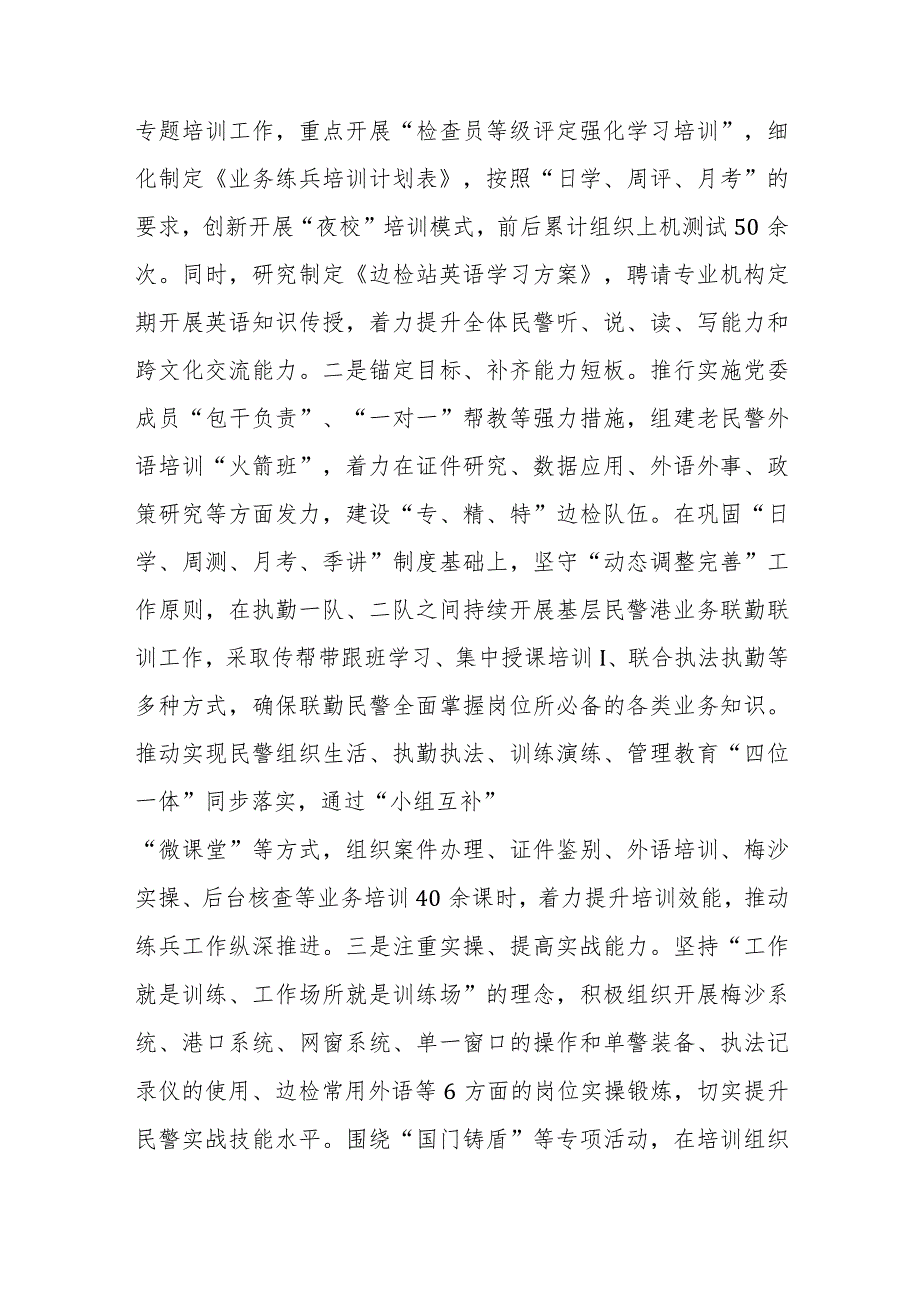 专题培训工作，重点开展“检查员等级评定强化学习培训”，细
化制定《业务练兵培训计划表》，按照“日学、周评、月考”的
要求，创新开展“夜校”培训模式，前后累计组织上机测试 50 余
次。同时，研究制定《边检站英语学习方案》，聘请专业机构定
期开展英语知识传授，着力提升全体民警听、说、读、写能力和
跨文化交流能力。二是锚定目标、补齐能力短板。推行实施党委
成员“包干负责”、“一对一”帮教等强力措施，组建老民警外
语培训“火箭班”，着力在证件研究、数据应用、外语外事、政
策研究等方面发力，建设“专、精、特”边检队伍。在巩固“日
学、周测、月考、季讲”制度基础上，坚守“动态调整完善”工
作原则，在执勤一队、二队之间持续开展基层民警港业务联勤联
训工作，采取传帮带跟班学习、集中授课培训 I、联合执法执勤等
多种方式，确保联勤民警全面掌握岗位所必备的各类业务知识。
推动实现民警组织生活、执勤执法、训练演练、管理教育“四位
一体”同步落实，通过“小组互补”
“微课堂”等方式，组织案件办理、证件鉴别、外语培训、梅沙
实操、后台核查等业务培训 40 余课时，着力提升培训效能，推动
练兵工作纵深推进。三是注重实操、提高实战能力。坚持“工作
就是训练、工作场所就是训练场”的理念，积极组织开展梅沙系
统、港口系统、网窗系统、单一窗口的操作和单警装备、执法记
录仪的使用、边检常用外语等 6 方面的岗位实操锻炼，切实提升
民警实战技能水平。围绕“国门铸盾”等专项活动，在培训组织